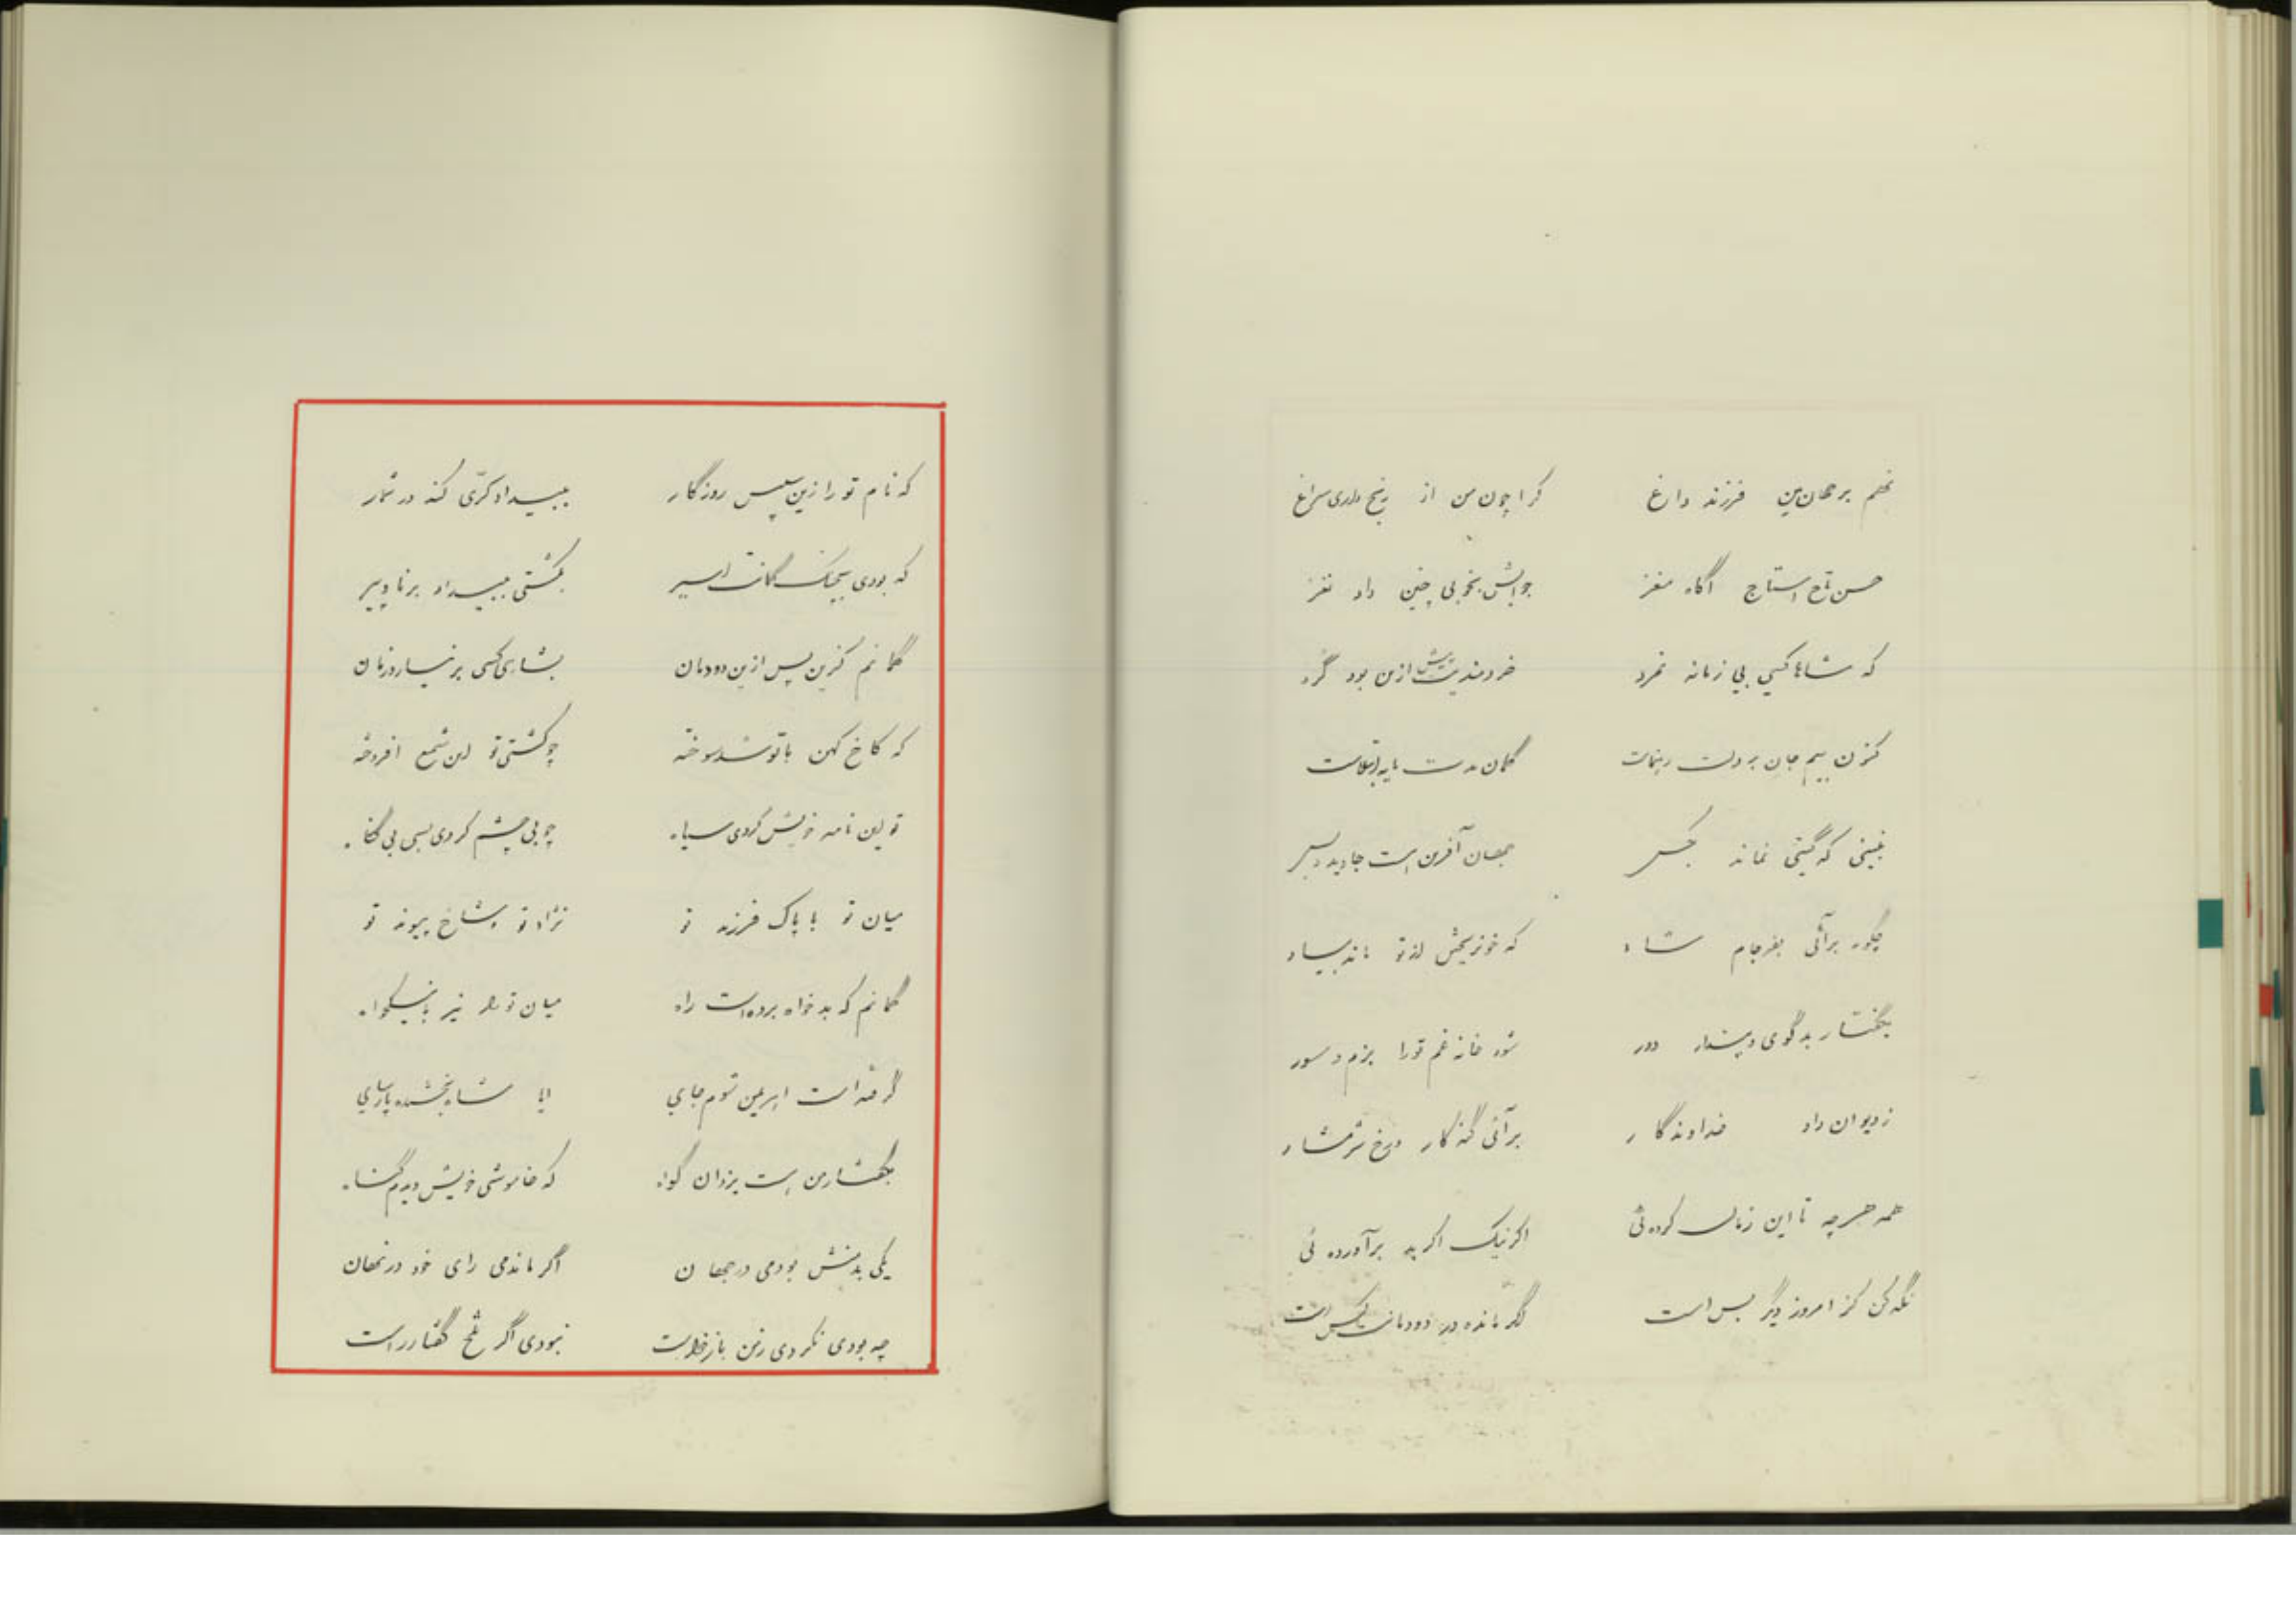 نهم بر جهان‌بین فرزند داغ کرا چون من از رنج داری سراغ
حسن تاج استاج آگاه مغز جوابش بخوبی چنین داد نغز
که شاها کسی بی زمانه نمرد خردمندیت بیش ازین بود گرد
کنون بیم جان بر دلت رهنماست گمان بدت مایه ابتلاست
نبینی که گیتی نماند بکس جهان آفرین است جاوید و بس
چگونه برآئی بفرجام شاه که خونریختن از تو ماند بیاد
بگفتار بدگوی و پندار دور شود خانه غم تو را بزم و سور
ز دیوان داد خداوندگار برآئی گنه کار و رخ شرمسار
همه هر چه تا این زمان کرده‌ئی اگر نیک اگر بد برآورده‌ئی
نگه کن کز امروز دیگر بس است اگر مانده در دودمان یکس است
که نام تو را زین سپس روزگار ببیداد گری کند در شمار
که بودی بچنگ گمانت اسیر بکشتی ببیداد برنا و پیر
گمانم کزین پس ازین دودمان بشاهی کسی بر نیارد زمان
که کاخ کهن با تو شد سوخته چو کشتی تو این شمع افروخته
تو این نامه خویش کردی سیاه چو بی چشم کردی بسی بی گناه
میان تو با پاک فرزند تو نژاد تو و شاخ پیوند تو
گمانم که بدخواه برده‌است راه میان تو را نیز با نیکخواه
گرفته است اهریمن شوم جای ایا شاه بخشنده پارسای
بگفتار من هست یزدان گواه که خاموشی خویش دیدم گناه
یکی بدمنش بودمی در جهان اگر ماندمی رای خود در نهان
چه بودی نکردی ز من بازخواست نبودی اگر تلخ گفتار راست